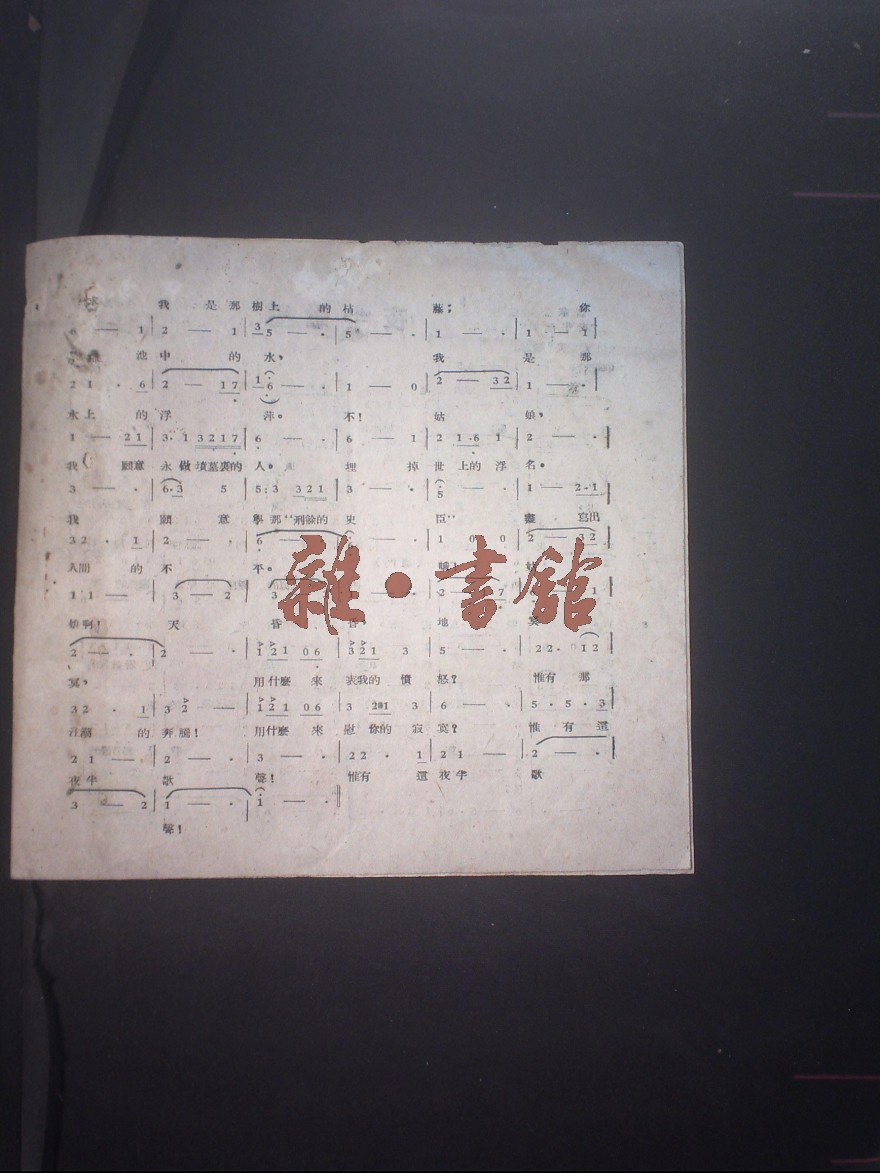 我 是 那 樹上 的 枯 藤； 你
6 — 1 | 2 — 1 | 3 5 — · | 5 — · | 1 — · | 1 — 1 |
池 中 的 水， 我 是 那
2 1 · 6 | 2 — 1 7 | 1 6 — · | 1 — 0 | 2 — 3 2 | 1 — · |
水上 的 浮 萍。 不！ 姑 娘，
1 — 2 1 | 3 · 1 3 2 1 7 | 6 — · | 6 — 1 | 2 1 · 6 1 | 2 — · |
我 願意 永 做 墳墓裏的 人。 埋 掉 世 上的 浮 名。
3 — · | 6 · 3 5 | 5 : 3 3 2 1 | 3 — · | 5 — · | 1 — 2 · 1 |
我 願 意 學 那“刑餘的 史 臣”， 盡 寫出
3 2 · 1 | 2 — · | 6 — · | 1 0 0 | 2 — 3 2 |
人間 的 不 平。 姑
1 1 — · | 3 — 2 | 3 2 — 7 1 |
娘啊！ 天 昏 昏， 地 冥
2 — · | 2 — · | 1 2 1 0 6 | 3 2 1 3 | 5 — · | 2 2 · 1 2 |
冥， 用什麼 來 表我的 憤 怒？ 惟有 那
3 2 · 1 | 3 2 — · | 1 2 1 0 6 | 3 2 0 1 3 | 6 — · | 5 · 5 · 3 |
江潮 的 奔騰！ 用什麼 來 慰 你的 寂 寞？ 惟 有 這
2 1 — · | 2 — · | 3 — · | 2 2 · 1 | 2 1 — | 2 — · |
夜半 歌 聲！ 惟有 這 夜半 歌
3 — 2 | 1 — · | 1 — · ‖
聲！
雜·書館